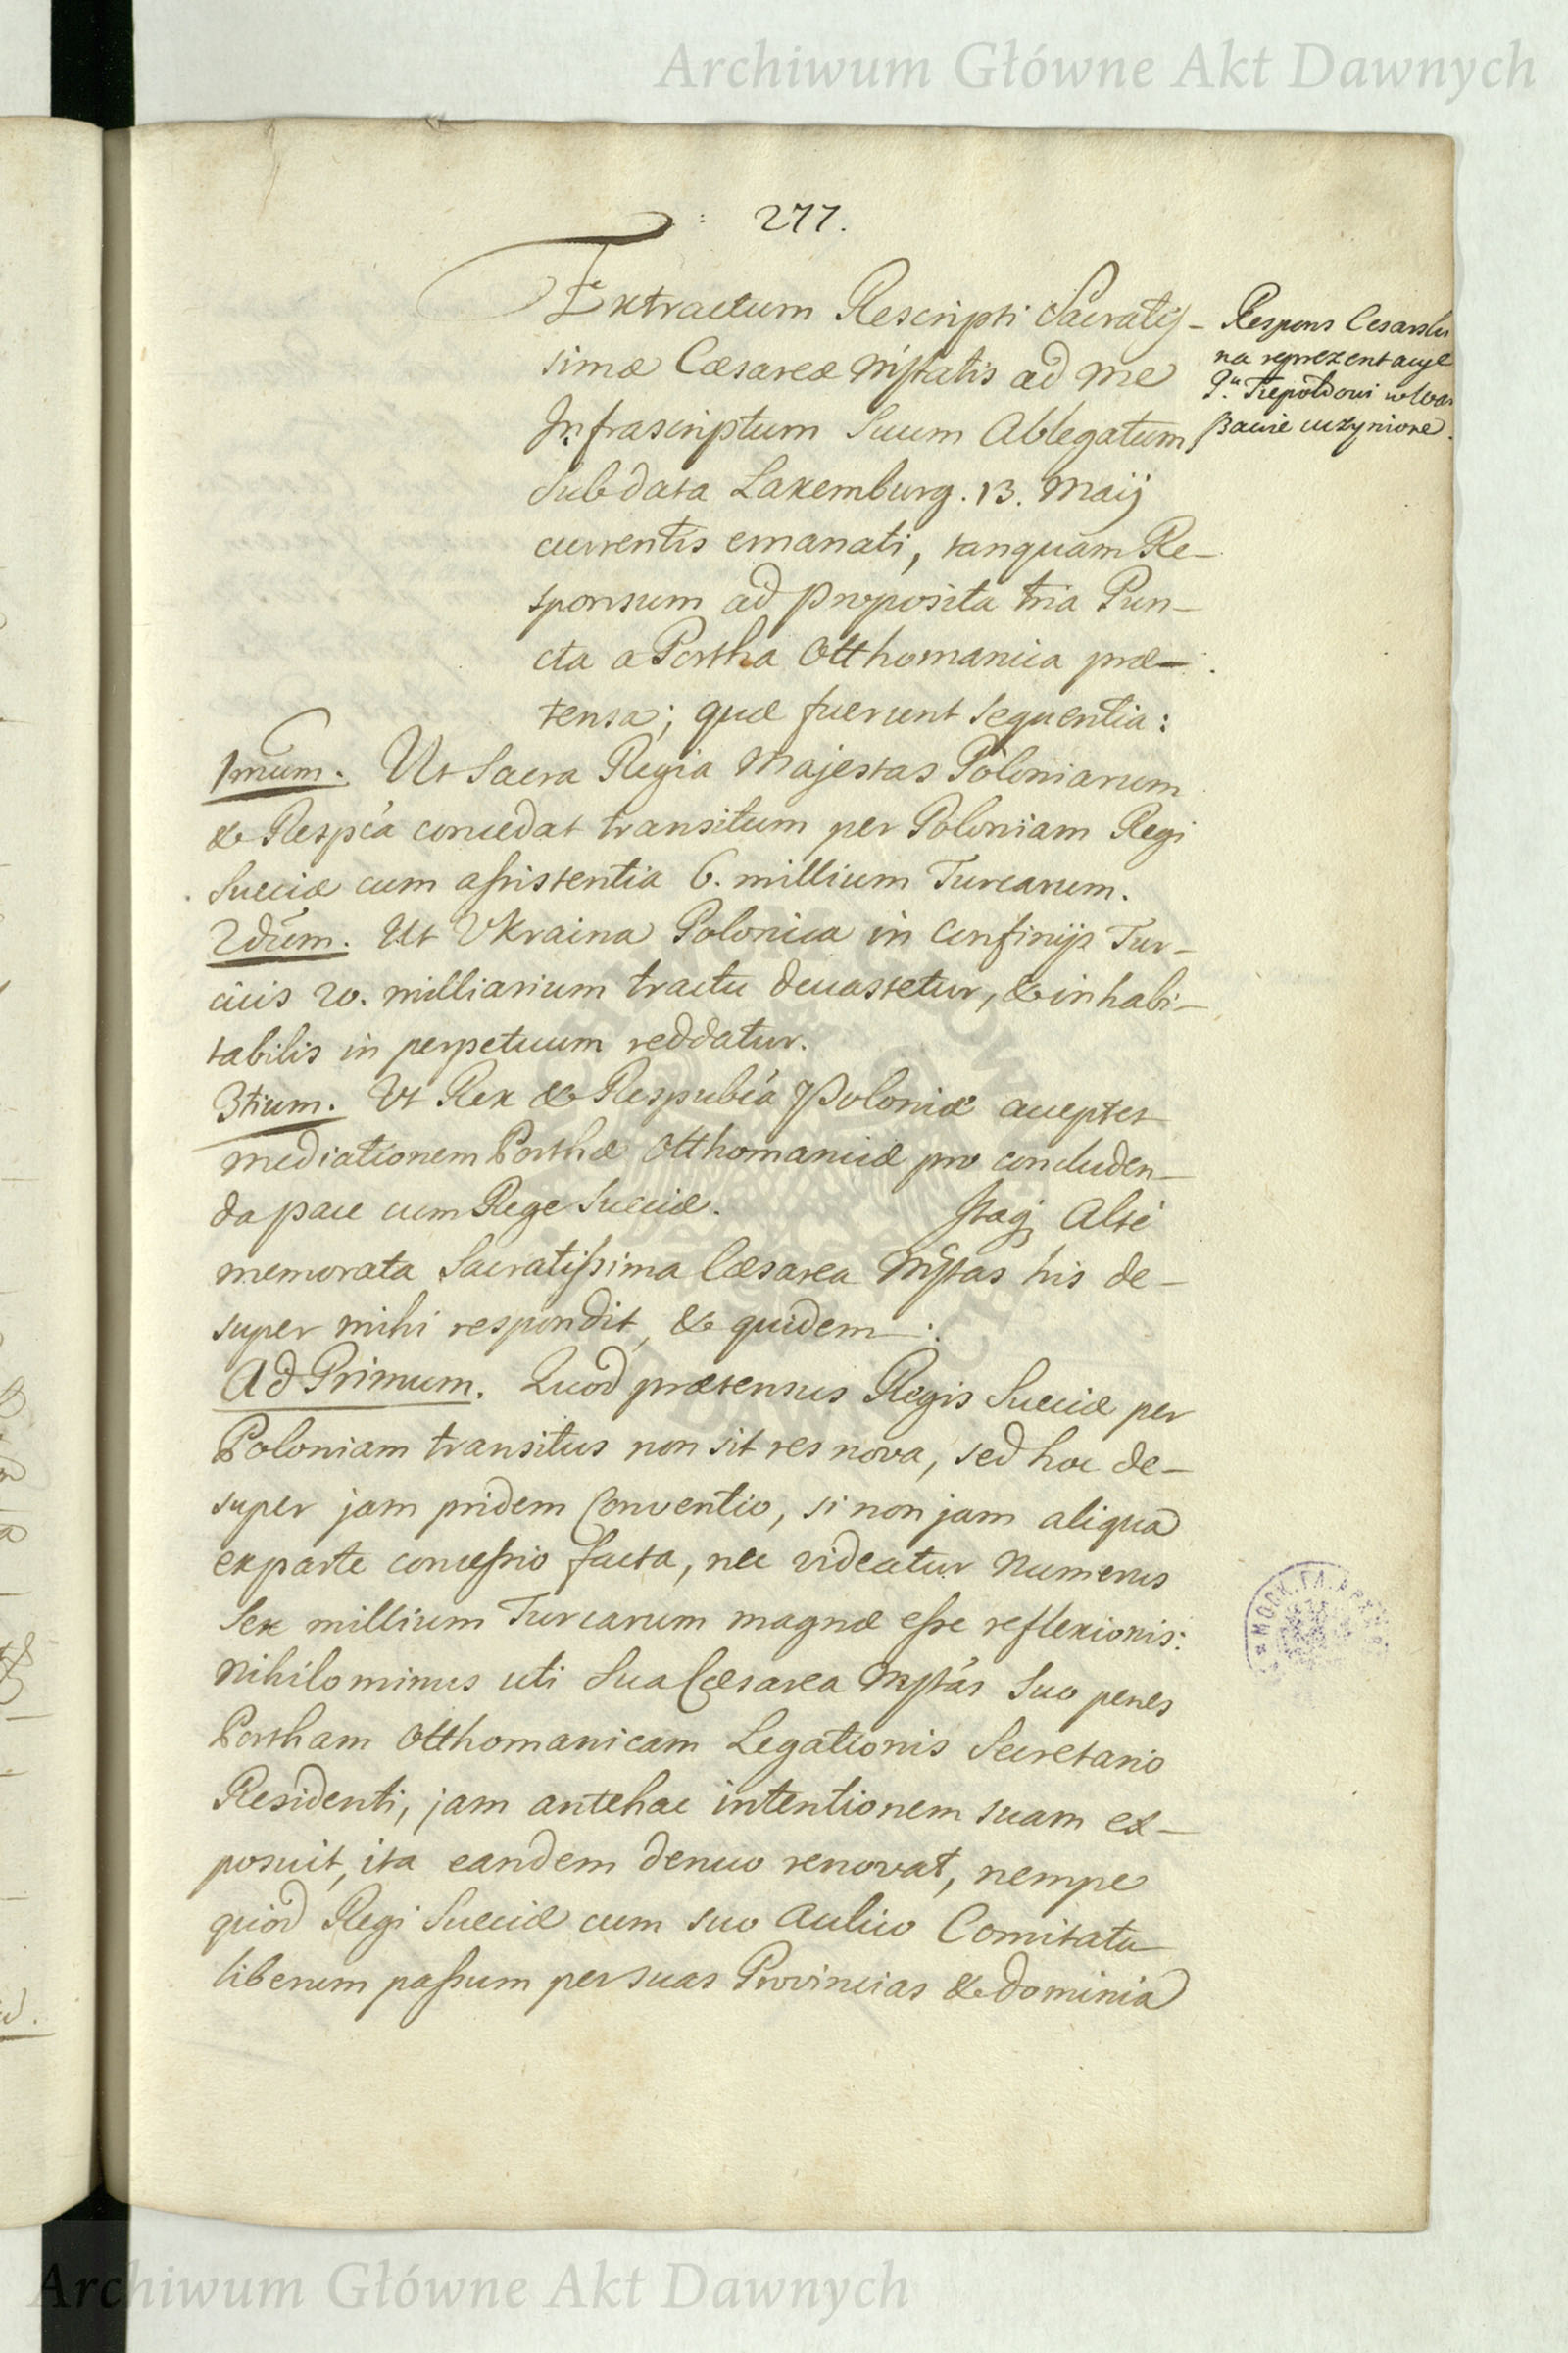 Archiwum Główne Akt Dawnych
277.
Extractum Rescripti Sacratis-
simæ Cæsareæ Mſtatis ad me
Infrascriptum Suum Ablegatum,
sub data Laxemburg. 13. Maij
currentis emanati, tanquam Re-
sponsum ad proposita tria Pun-
cta a Portha Otthomanica præ-
tensa; quæ fuerunt sequentia:
Respons Cesarski
na reprezentacyę
Tiepoldowi w War
ßawie uczynione.
1mum. Ut Sacra Regia Majestas Poloniarum
& Respca concedat transitum per Poloniam Regi
Sueciæ cum aſsistentia 6. millium Turcarum.
2dum. Ut Vkraina Polonica in Confinijs Tur-
cicis 20. milliarium tractu devastetur, & inhabi-
tabilis in perpetuum reddatur.
3tium. Vt Rex & Respubca Poloniæ acceptet
mediationem Porthæ Otthomanicæ pro concluden-
da pace cum Rege Sueciæ. Itaq Alte
memorata Sacratiſsima Cæsarea Mſtas his de-
super mihi respondit, & quidem:
Ad Primum. Quod prætensus Regis Sueciæ per
Poloniam transitus non sit res nova, sed hoc de-
super jam pridem Conventio, si non jam aliqua
ex parte conceſsio facta, nec videatur Numerus
Sex millium Turcarum magnæ eſse reflexionis:
Nihilominus uti Sua Cæsarea Mſtas Suo penes
Portham Otthomanicam Legationis Secretario
Residenti, jam antehac intentionem suam ex-
posuit, ita eandem denuo renovat, nempe
quod Regi Sueciæ cum suo Aulico Comitatu
liberum paſsum per suas Provincias & Dominia
Archiwum Główne Akt Dawnych